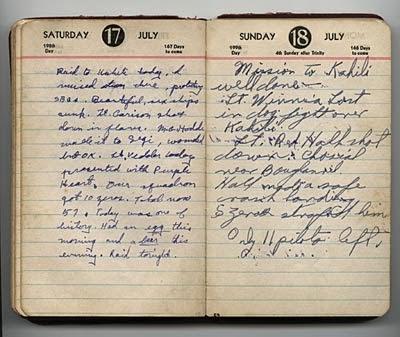 SATURDAY 17 JULY
198th Day
167 Days to come
Raid to Kahili today. I
missed show here, patrolling
SBDs. Beautiful, six ships
sunk. Lt. Carison shot
down in flames. Mr.
made it to Segi, wounded
but OK. Lt. Vedder today
presented with Purple
Heart. Our squadron
got 10 zeros. Total now
57. Today was one of
history. Had an egg this
morning and a beer this
evening. Raid tonight.
SUNDAY 18 JULY
199th Day
4th Sunday after Trinity
166 Days to come
Mission to Kahili
well done
Lt. Lost
in dog fight over
Kahili.
Lt. Hall shot
down
near
Hall made a safe
crash landing
5 Zeros strafed him
Only 11 pilots left.